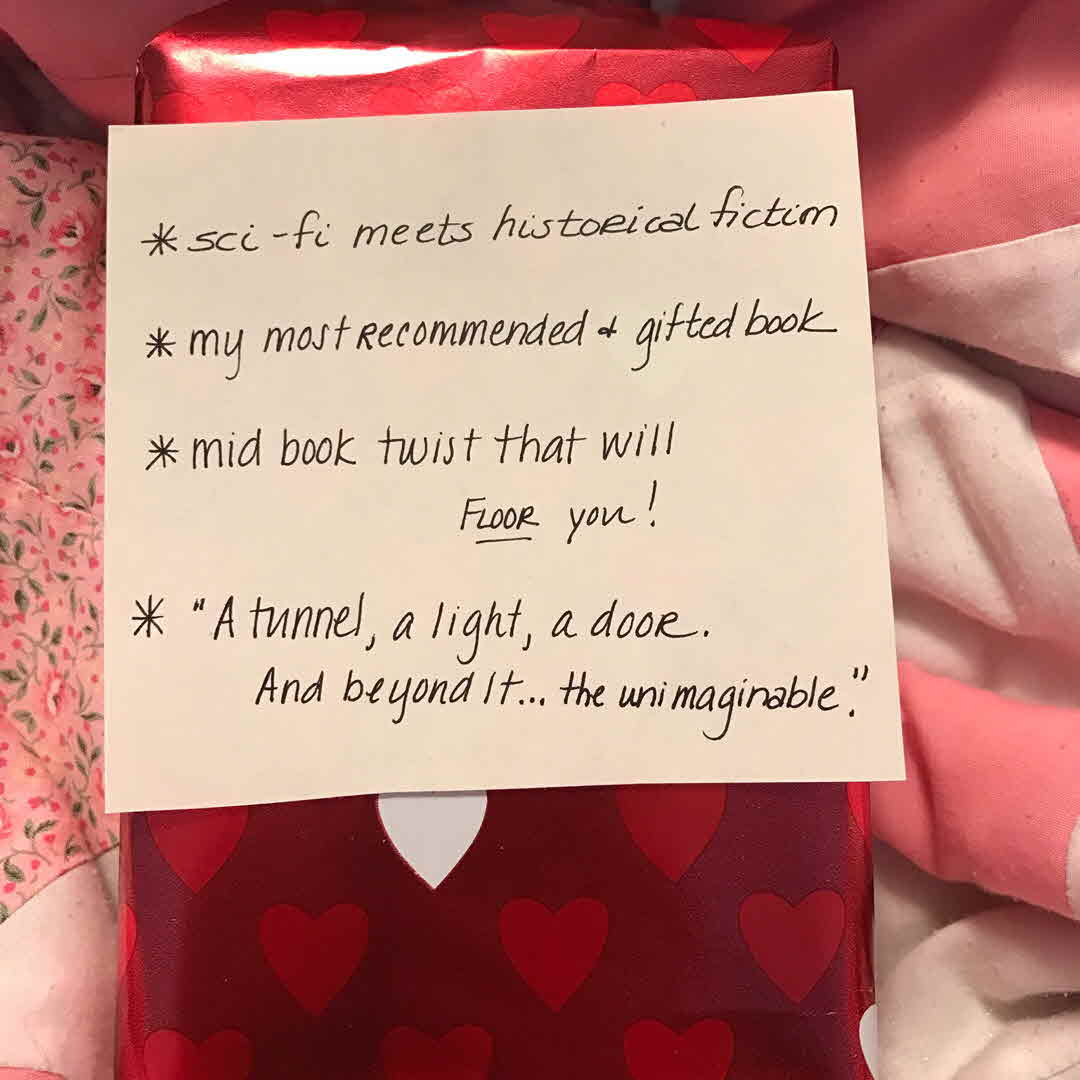 * sci-fi meets historical fiction
* my most recommended & gifted book
* mid book twist that will
FLOOR you!
* "A tunnel, a light, a door.
And beyond it... the unimaginable."